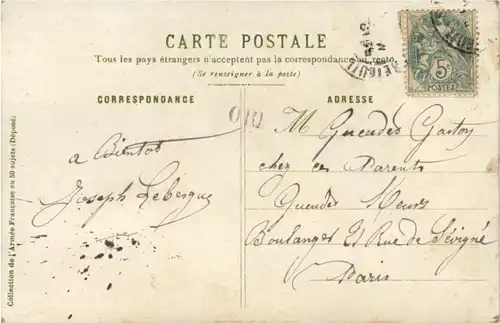 CARTE POSTALE
Tous les pays étrangers n'acceptent pas la correspondance au recto.
(Se renseigner à la poste)
CORRESPONDANCE
ADRESSE
a Bientot
Joseph Lebesgue
M Gueudes Gaston
chez ces Parents
Gueudes
Boulanger 21 Rue de Sévigné
Paris
5c
POSTES
Collection de l'Armée Française en 50 sujets (Déposé)